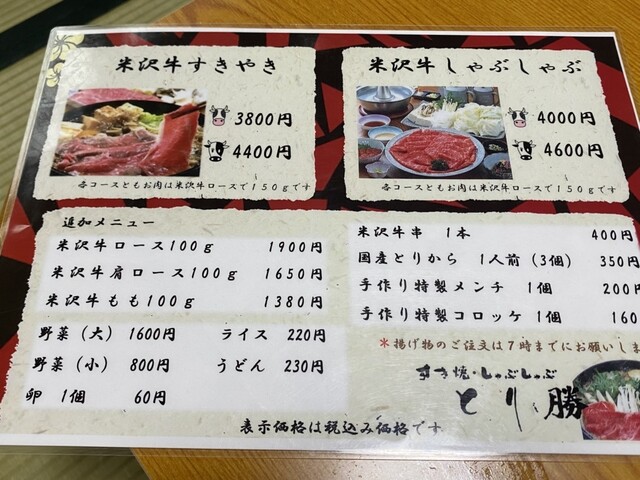 米沢牛すきやき
3800円
4400円
各コースともお肉は米沢牛ロースで150gです
米沢牛しゃぶしゃぶ
4000円
4600円
各コースともお肉は米沢牛ロースで150gです
追加メニュー
米沢牛ロース100g 1900円
米沢牛肩ロース100g 1650円
米沢牛もも100g 1380円
野菜(大) 1600円 ライス 220円
野菜(小) 800円 うどん 230円
卵 1個 60円
米沢牛串 1本 400円
国産とりから 1人前(3個) 350円
手作り特製メンチ 1個 200円
手作り特製コロッケ 1個 160
*揚げ物のご注文は7時までにお願いしま
すき焼・しゃぶしゃぶ
とり勝
表示価格は税込み価格です